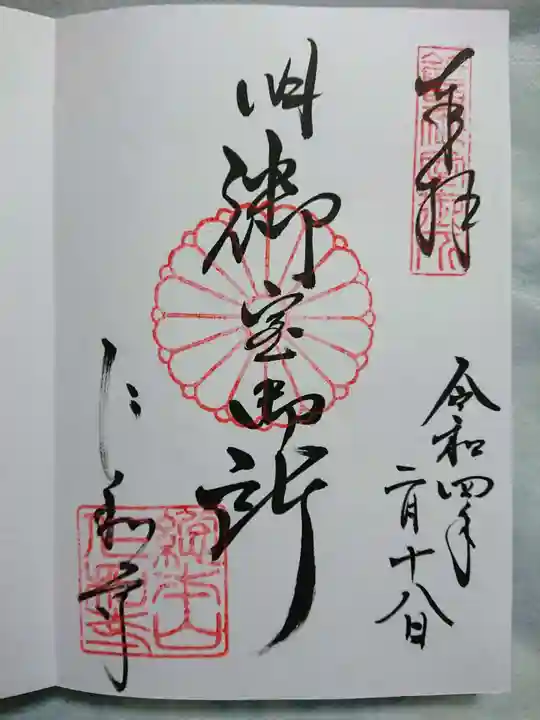 奉拝
令和四年
二月十八日
旧御室御所
仁和寺
総本山
仁和寺